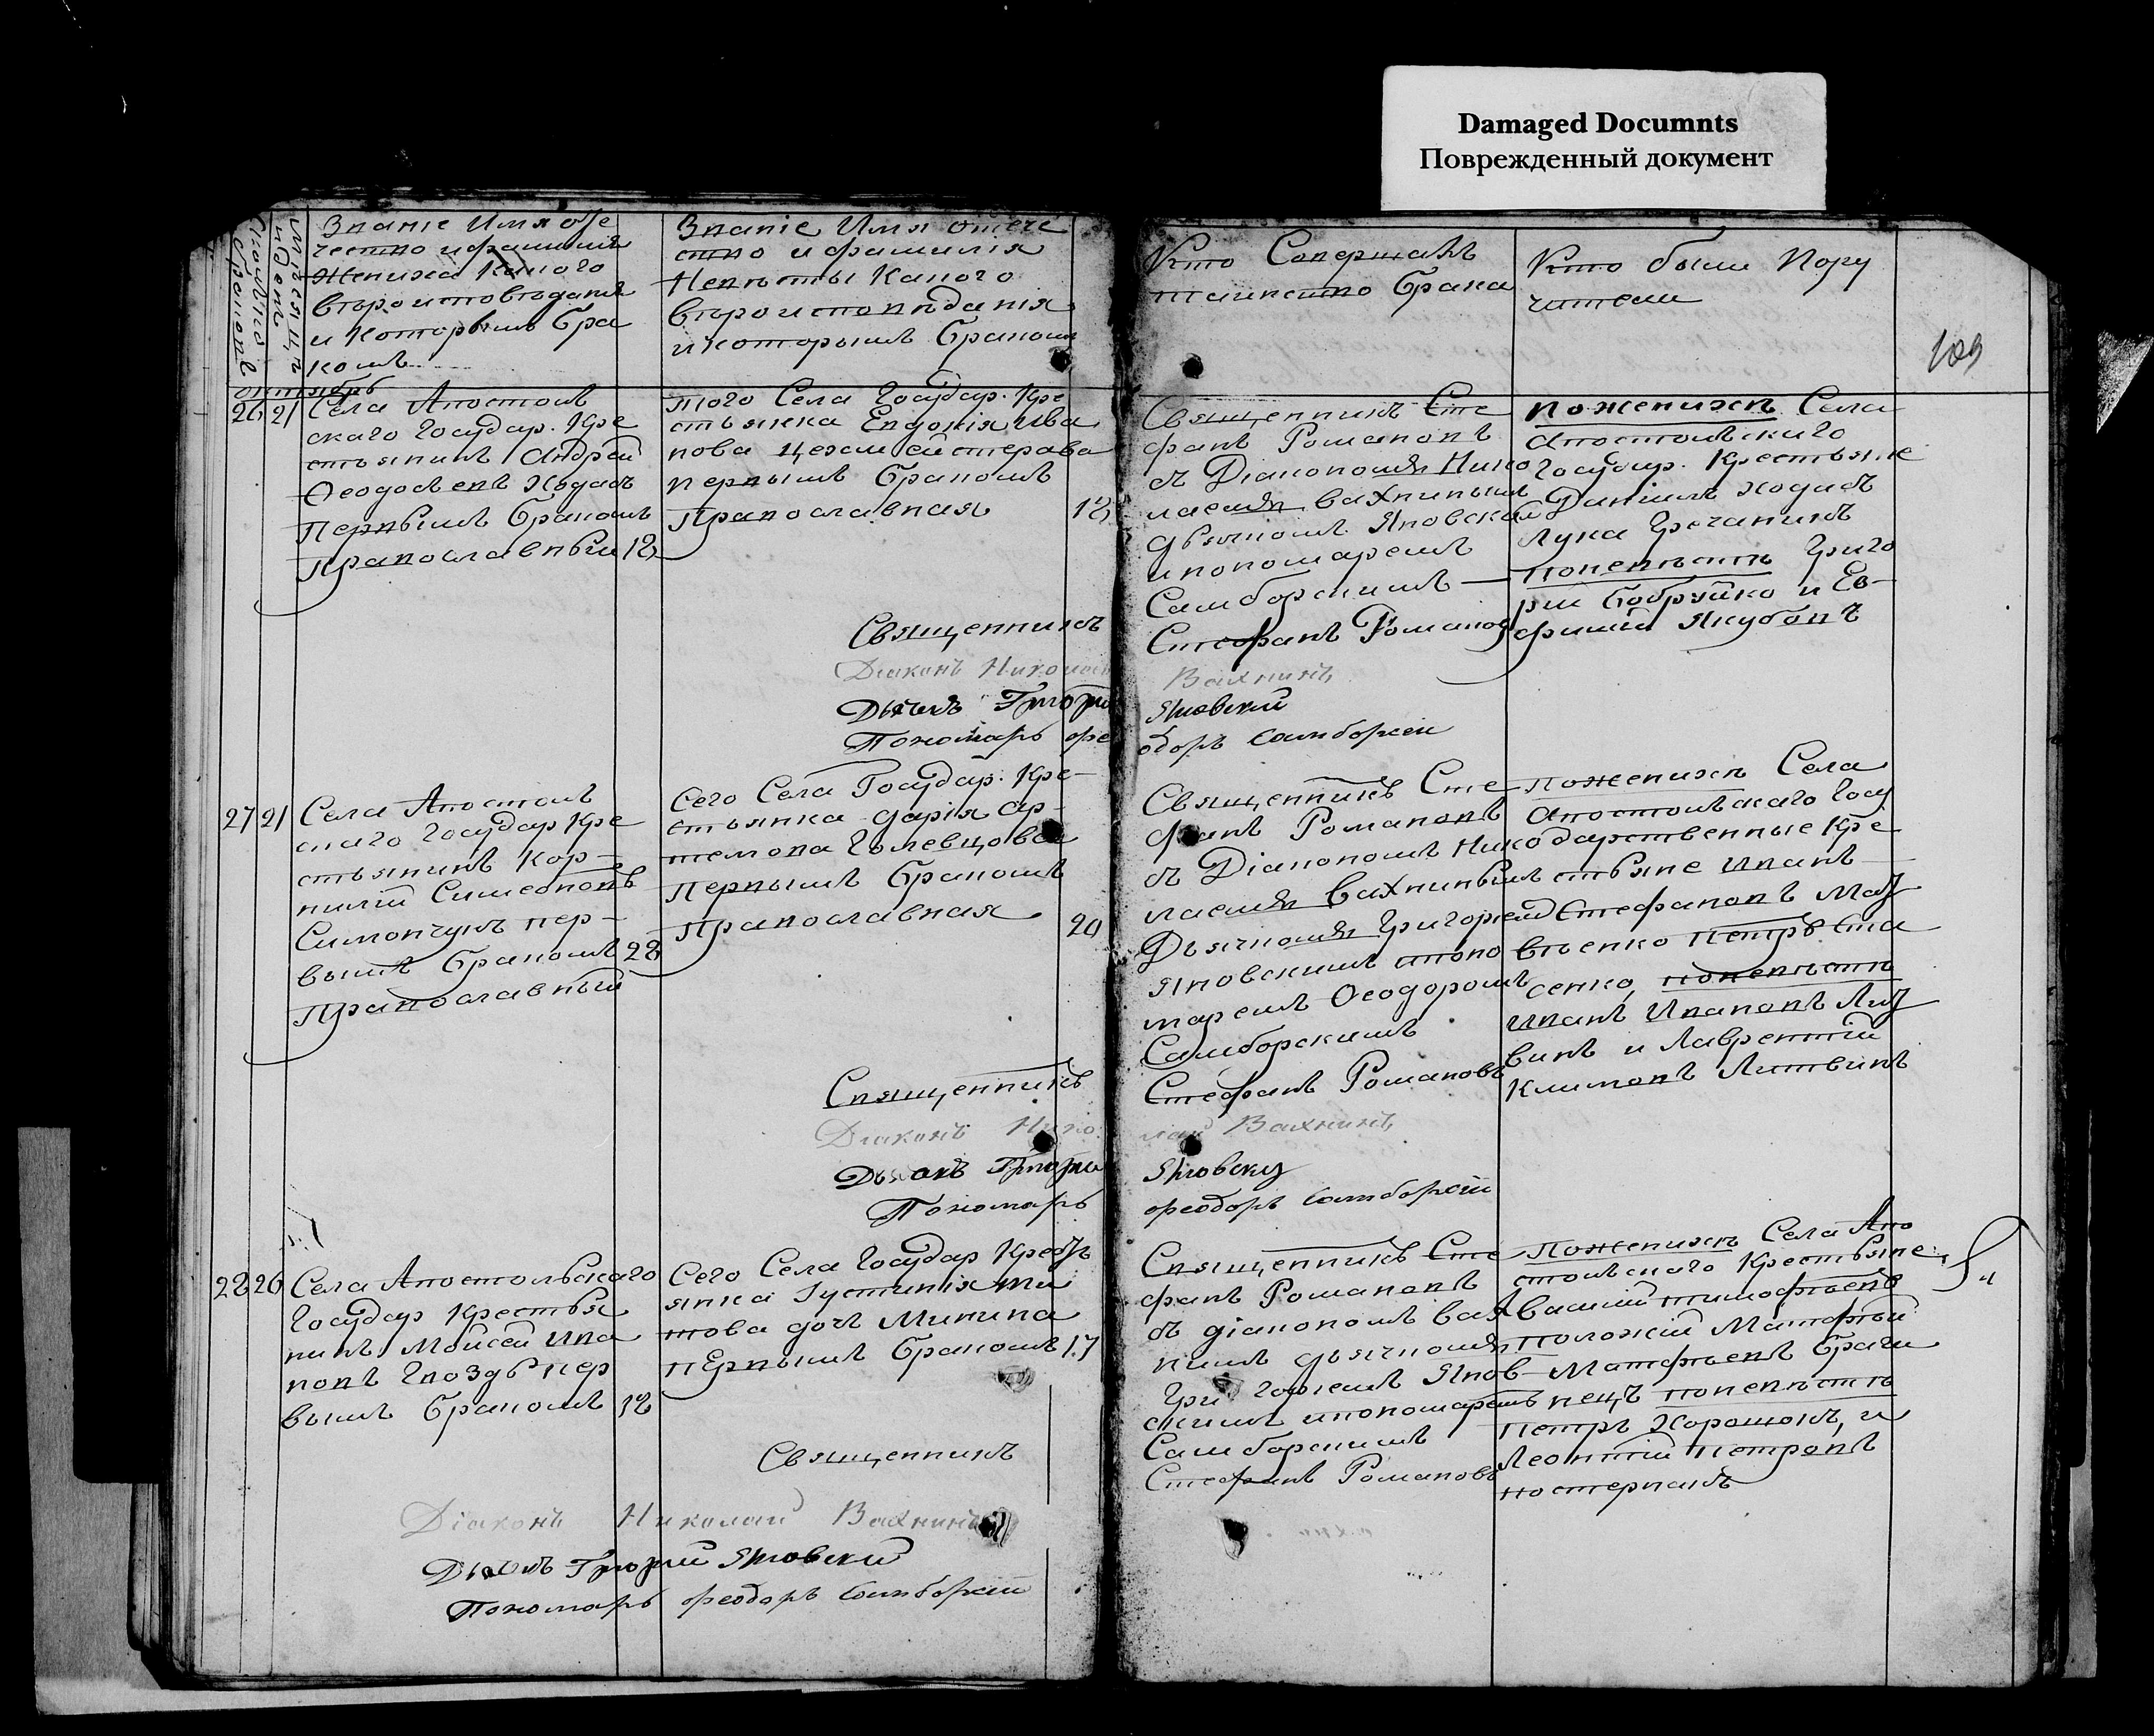 Damaged Documnts
Поврежденный документ
Званіе Имя оте
чество и фамилія
Жениха Какого
вѣроисповѣданія
и Которымъ бра
комъ
Званіе Имя отече
ство и фамилія
Невѣсты Какого
вѣроисповѣданія
и которымъ бракомъ
Кто Совершалъ
таинство брака
Кто были Пору
чители
109
октябрь
26 21 Села Апостоль
скаго Государ. Кре
стьянинъ Андрей
Ѳеодосіевъ Ходасъ
Первымъ бракомъ
Православный 18
того Села Государ. Кре
стьянка Евдокія Ива
нова Цехмейстерова
первымъ бракомъ
Православная 18
Священникъ Сте
фанъ Романовъ
съ Діакономъ Нико
лаемъ Вахнинымъ
дьячкомъ Яновскимъ
и пономаремъ
Самборскимъ
по женихѣ Села
Апостольскаго
Государ. Крестьяне
Даніилъ Ходасъ
Лука Гречаникъ
по невѣстѣ Григо
рій Бобруйко и Ев-
фимій Якубовъ
Священникъ Стефанъ Романов
Діаконъ Николай Вахнинъ
Дьячекъ Григорій Яновскій
Пономарь Феодоръ Самборскій
27 21 Села Апостоль
скаго Государ Кре
стьянинъ Кор-
нилій Симеоновъ
Симончукъ пер-
вымъ бракомъ 28
Православный
Сего Села Государ. Кре-
стьянка Дарія Ар-
темова Голевцова
Первымъ бракомъ
Православная 20
Священникъ Сте
фанъ Романовъ
съ Діакономъ Нико
лаемъ Вахнинымъ
Дьячкомъ Григоріем
Яновскимъ и поно
маремъ Ѳеодоромъ
Самборскимъ
по женихѣ Села
Апостольскаго Госу
дарственные Кре
стьяне Иванъ
Стефановъ Мат
вѣенко Петръ Ста
сенко, по невѣстѣ
Иванъ Ивановъ Лит
винъ и Лаврентій
Климовъ Литвинъ
Священникъ Стефанъ Романовъ
Діаконъ Николай Вахнинъ
Дьячокъ Григорій Яновскій
Пономарь Феодоръ Самборскій
28 26 Села Апостольскаго
Государ Крестья
нинъ Мойсей Ива
новъ Гвоздь пер
вымъ бракомъ 18
Сего Села Государ Крестъ
янка Іустинія Ти
това дочь Минина
первымъ бракомъ 17
Священникъ Сте
фанъ Романовъ
съ діакономъ Вах
нинымъ дьячкомъ
Григоріемъ Янов-
скимъ и пономаремъ
Самборскимъ
по женихѣ Села Апо
стольскаго Крестьяне
Василій Тимофѣевъ
Положій Матфѣй
Матфѣевъ Браги
нецъ по невѣстѣ
Петръ Хорошокъ, и
Леонтій Петровъ
Костернакъ
Священникъ Стефанъ Романовъ
Діаконъ Николай Вахнинъ
Дьячекъ Григорій Яновскій
Пономарь Феодоръ Самборскій